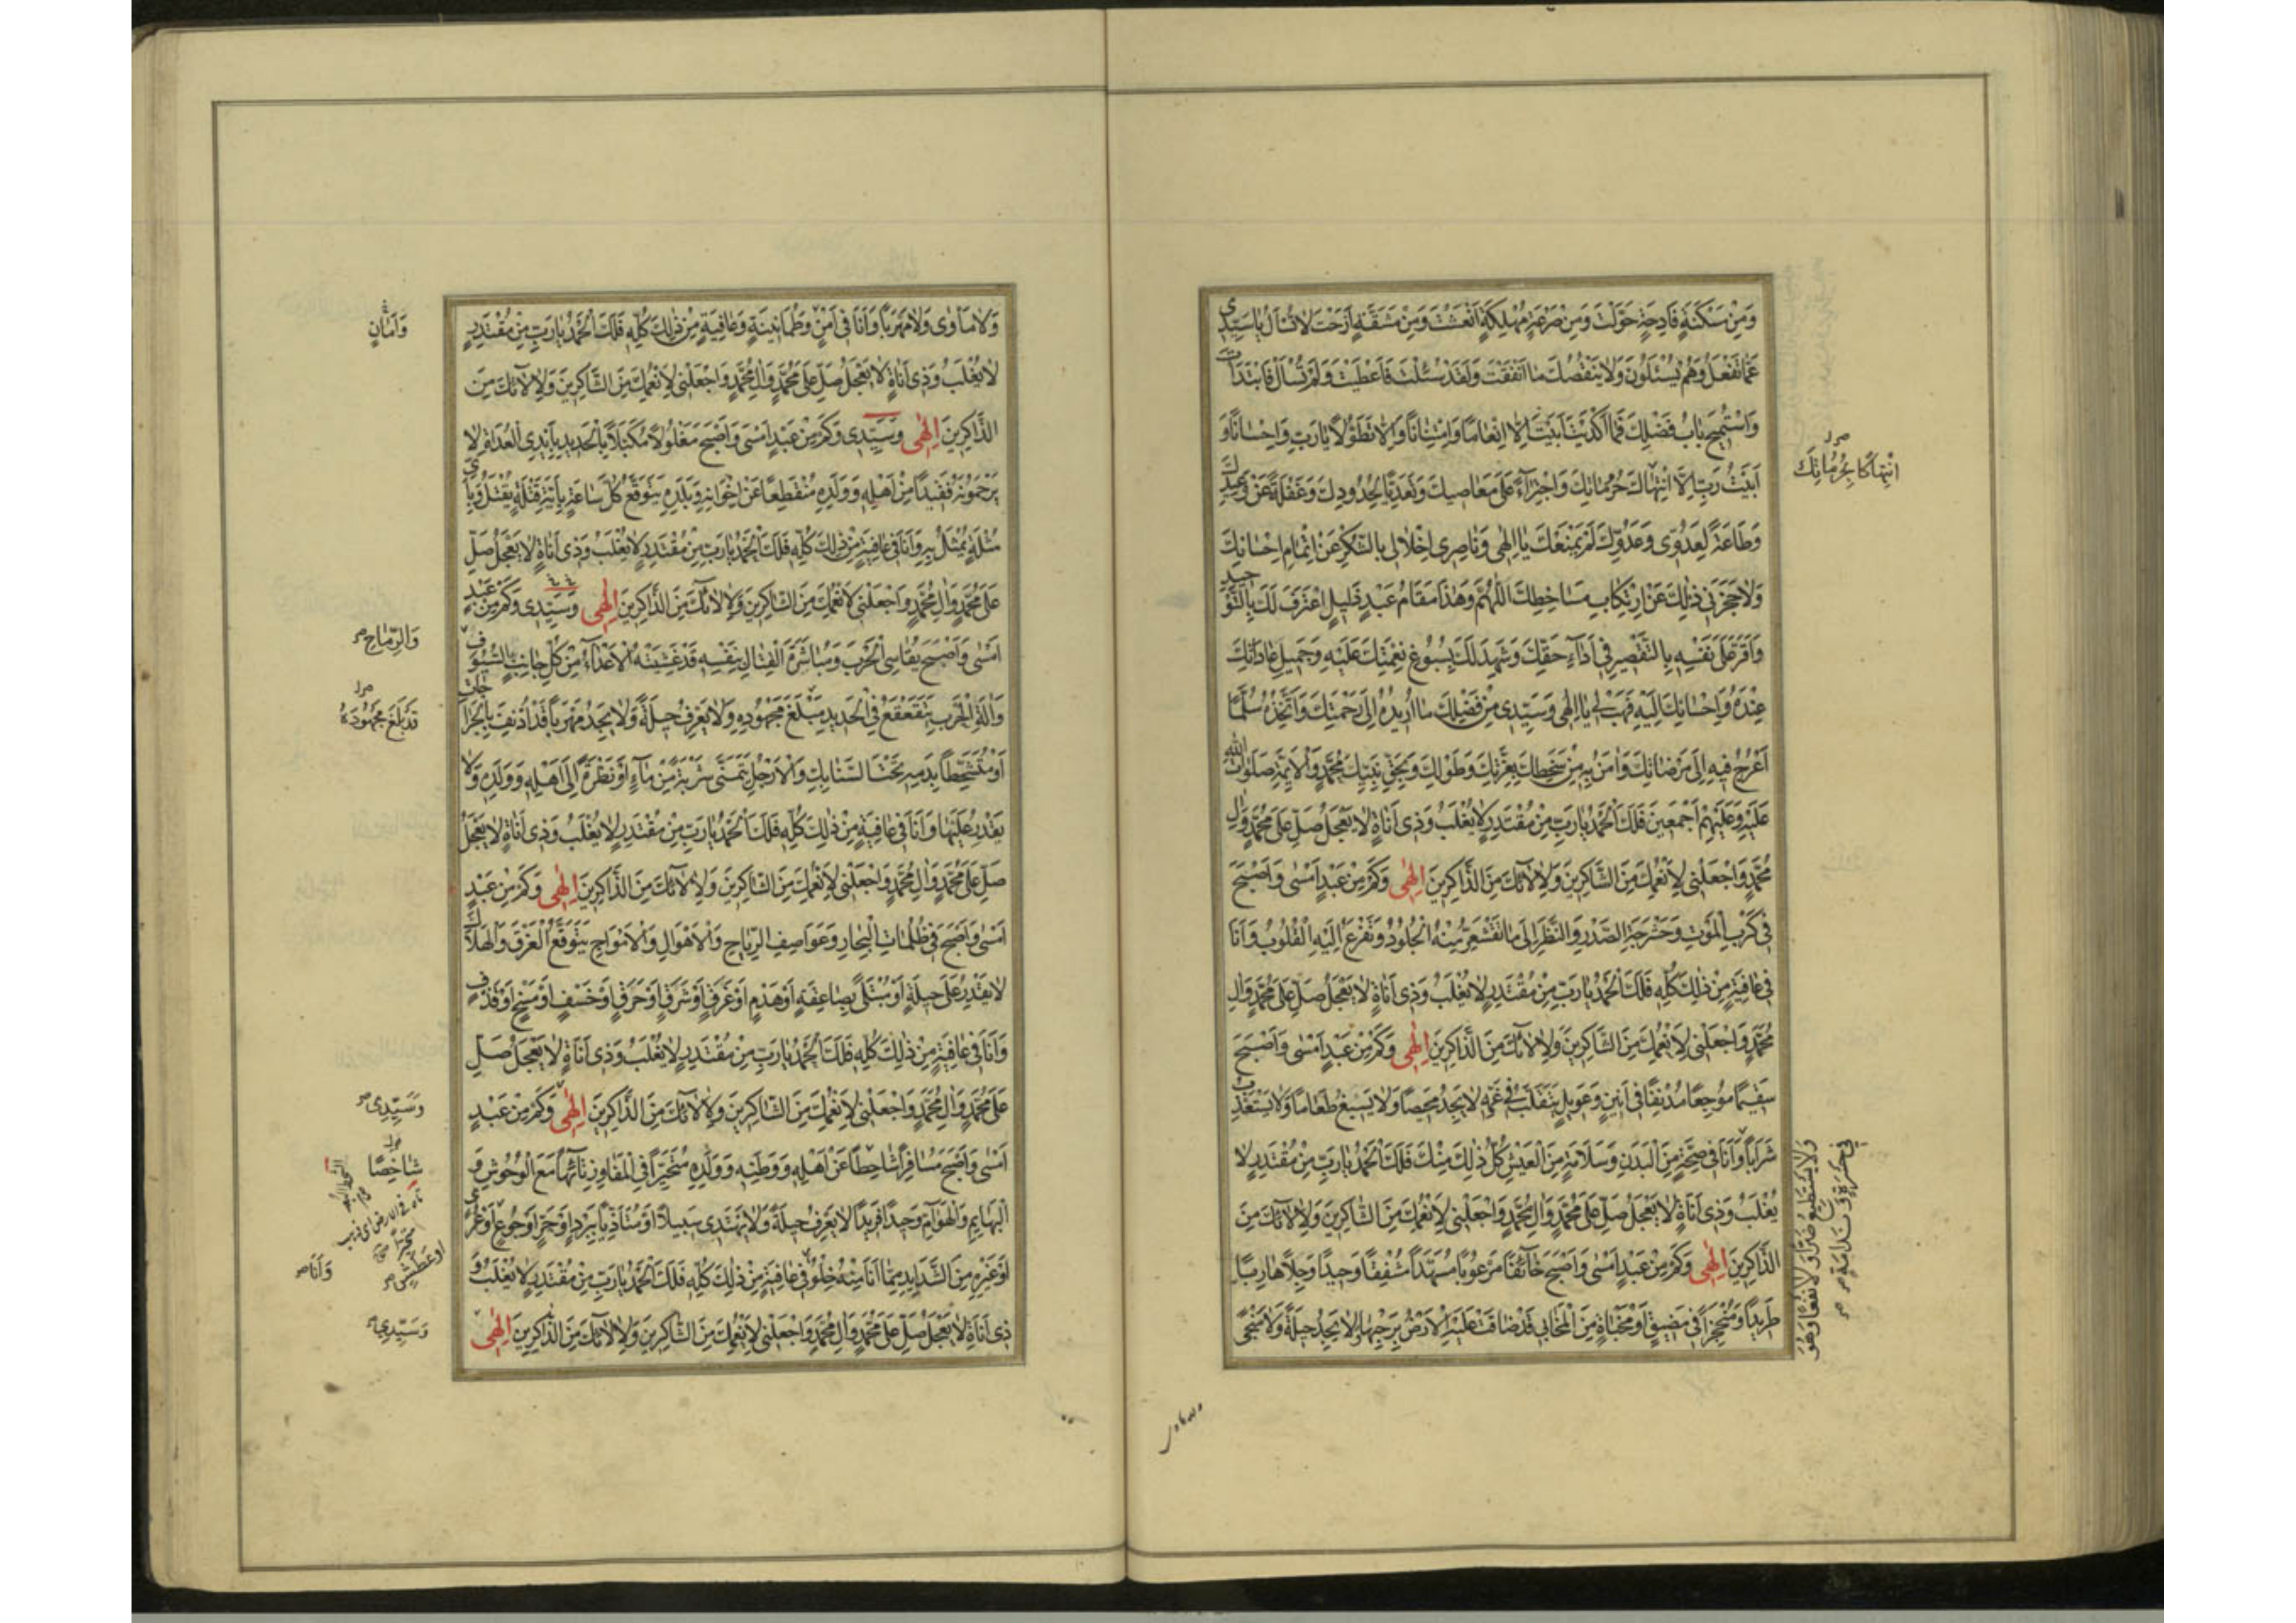 وَمِنْ مَسْكَنَةٍ فَادِحَةٍ حَوَّلْتَ وَمِنْ صَرْعَةٍ مُهْلِكَةٍ اَنْعَشْتَ وَمِنْ مَشَقَّةٍ اَزَحْتَ لَا تُسْأَلُ يَا سَيِّدِي
عَمَّا تَفْعَلُ وَهُمْ يُسْئَلُونَ وَلَا يَنْقُصُكَ مَا اَنْفَقْتَ وَلَقَدْ سُئِلْتَ فَاَعْطَيْتَ وَلَمْ تُسْأَلْ فَابْتَدَأْتَ
وَاسْتُمِيحَ بَابُ فَضْلِكَ فَمَا اَكْدَيْتَ اَبَيْتَ اِلَّا اِنْعَامًا وَامْتِنَانًا وَاِلَّا تَطَوُّلًا يَا رَبِّ وَاِحْسَانًا وَ
اَبَيْتُ رَبِّ اِلَّا انْتِهَاكَ حُرُمَاتِكَ وَاجْتِرَاءً عَلَى مَعَاصِيكَ وَتَعَدِّيًا لِحُدُودِكَ وَغَفْلَةً عَنْ وَعِيدِكَ
وَطَاعَةً لِعَدُوِّي وَعَدُوِّكَ لَمْ يَمْنَعْكَ يَا اِلٰهِي وَنَاصِرِي اِخْلَالِي بِالشُّكْرِ عَنْ اِتْمَامِ اِحْسَانِكَ
وَلَا حَجَزَنِي ذٰلِكَ عَنْ ارْتِكَابِ مَسَاخِطِكَ اَللّٰهُمَّ وَهٰذَا مَقَامُ عَبْدٍ ذَلِيلٍ اعْتَرَفَ لَكَ بِالتَّوْحِيدِ
وَاَقَرَّ عَلَى نَفْسِهِ بِالتَّقْصِيرِ فِي اَدَاءِ حَقِّكَ وَشَهِدَ لَكَ بِسُبُوغِ نِعْمَتِكَ عَلَيْهِ وَجَمِيلِ عَادَاتِكَ
عِنْدَهُ وَاِحْسَانِكَ اِلَيْهِ فَهَبْ لِي يَا اِلٰهِي وَسَيِّدِي مِنْ فَضْلِكَ مَا اُرِيدُهُ اِلَى رَحْمَتِكَ وَاَتَّخِذُهُ سُلَّمًا
اَعْرُجُ فِيهِ اِلَى مَرْضَاتِكَ وَاٰمَنُ بِهِ مِنْ سَخَطِكَ بِعِزَّتِكَ وَطَوْلِكَ وَبِحَقِّ نَبِيِّكَ مُحَمَّدٍ وَالْاَئِمَّةِ صَلَوَاتُ اللّٰهِ
عَلَيْهِ وَعَلَيْهِمْ اَجْمَعِينَ فَلَكَ الْحَمْدُ يَا رَبِّ مِنْ مُقْتَدِرٍ لَا يُغْلَبُ وَذِي اَنَاةٍ لَا يَعْجَلُ صَلِّ عَلَى مُحَمَّدٍ وَاٰلِ
مُحَمَّدٍ وَاجْعَلْنِي لِاَنْعُمِكَ مِنَ الشَّاكِرِينَ وَلِاٰلَائِكَ مِنَ الذَّاكِرِينَ اِلٰهِي وَكَمْ مِنْ عَبْدٍ اَمْسَى وَاَصْبَحَ
فِي كَرْبِ الْمَوْتِ وَحَشْرَجَةِ الصَّدْرِ وَالنَّظَرِ اِلَى مَا تَقْشَعِرُّ مِنْهُ الْجُلُودُ وَتَفْزَعُ اِلَيْهِ الْقُلُوبُ وَاَنَا
فِي عَافِيَةٍ مِنْ ذٰلِكَ كُلِّهِ فَلَكَ الْحَمْدُ يَا رَبِّ مِنْ مُقْتَدِرٍ لَا يُغْلَبُ وَذِي اَنَاةٍ لَا يَعْجَلُ صَلِّ عَلَى مُحَمَّدٍ وَاٰلِ
مُحَمَّدٍ وَاجْعَلْنِي لِاَنْعُمِكَ مِنَ الشَّاكِرِينَ وَلِاٰلَائِكَ مِنَ الذَّاكِرِينَ اِلٰهِي وَكَمْ مِنْ عَبْدٍ اَمْسَى وَاَصْبَحَ
سَقِيمًا مُوجَعًا مُدْنِفًا فِي اَنِينٍ وَعَوِيلٍ يَتَقَلَّبُ فِي غَمِّهِ لَا يَجِدُ مَحِيصًا وَلَا يُسِيغُ طَعَامًا وَلَا يَسْتَعْذِبُ
شَرَابًا وَاَنَا فِي صِحَّةٍ مِنَ الْبَدَنِ وَسَلَامَةٍ مِنَ الْعَيْشِ كُلُّ ذٰلِكَ مِنْكَ فَلَكَ الْحَمْدُ يَا رَبِّ مِنْ مُقْتَدِرٍ لَا
يُغْلَبُ وَذِي اَنَاةٍ لَا يَعْجَلُ صَلِّ عَلَى مُحَمَّدٍ وَاٰلِ مُحَمَّدٍ وَاجْعَلْنِي لِاَنْعُمِكَ مِنَ الشَّاكِرِينَ وَلِاٰلَائِكَ مِنَ
الذَّاكِرِينَ اِلٰهِي وَكَمْ مِنْ عَبْدٍ اَمْسَى وَاَصْبَحَ خَائِفًا مَرْعُوبًا مُسَهَّدًا مُشْفِقًا وَحِيدًا وَجِلًا هَارِبًا
طَرِيدًا وَمُنْحَجِزًا فِي مَضِيقٍ اَوْ مَخْبَاَةٍ مِنَ الْمَخَابِي قَدْ ضَاقَتْ عَلَيْهِ الْاَرْضُ بِرَحْبِهَا وَلَا يَجِدُ حِيلَةً وَلَا مَنْجًى
انْتِهَاكًا لِحُرُمَاتِكَ
وَلَا يَسْتَطِيعُ ضَرًّا وَلَا نَفْعًا وَهُوَ
فِي حَسْرَةٍ وَنَدَامَةٍ
وَلَا مَأْوًى وَلَا مَهْرَبًا وَاَنَا فِي اَمْنٍ وَطُمَأْنِينَةٍ وَعَافِيَةٍ مِنْ ذٰلِكَ كُلِّهِ فَلَكَ الْحَمْدُ يَا رَبِّ مِنْ مُقْتَدِرٍ
لَا يُغْلَبُ وَذِي اَنَاةٍ لَا يَعْجَلُ صَلِّ عَلَى مُحَمَّدٍ وَاٰلِ مُحَمَّدٍ وَاجْعَلْنِي لِاَنْعُمِكَ مِنَ الشَّاكِرِينَ وَلِاٰلَائِكَ مِنَ
الذَّاكِرِينَ اِلٰهِي وَسَيِّدِي وَكَمْ مِنْ عَبْدٍ اَمْسَى وَاَصْبَحَ مَغْلُولًا مُكَبَّلًا بِالْحَدِيدِ بِاَيْدِي الْعُدَاةِ لَا
يَرْحَمُونَهُ فَقِيدًا مِنْ اَهْلِهِ وَوَلَدِهِ مُنْقَطِعًا عَنْ اِخْوَانِهِ وَبَلَدِهِ يَتَوَقَّعُ كُلَّ سَاعَةٍ بِاَيَّةِ قِتْلَةٍ يُقْتَلُ وَبِاَيِّ
مُثْلَةٍ يُمَثَّلُ بِهِ وَاَنَا فِي عَافِيَةٍ مِنْ ذٰلِكَ كُلِّهِ فَلَكَ الْحَمْدُ يَا رَبِّ مِنْ مُقْتَدِرٍ لَا يُغْلَبُ وَذِي اَنَاةٍ لَا يَعْجَلُ صَلِّ
عَلَى مُحَمَّدٍ وَاٰلِ مُحَمَّدٍ وَاجْعَلْنِي لِاَنْعُمِكَ مِنَ الشَّاكِرِينَ وَلِاٰلَائِكَ مِنَ الذَّاكِرِينَ اِلٰهِي وَسَيِّدِي وَكَمْ مِنْ عَبْدٍ
اَمْسَى وَاَصْبَحَ يُقَاسِي الْحَرْبَ وَمُبَاشَرَةَ الْقِتَالِ بِنَفْسِهِ قَدْ غَشِيَتْهُ الْاَعْدَاءُ مِنْ كُلِّ جَانِبٍ بِالسُّيُوفِ
وَاٰلَةِ الْحَرْبِ يَتَقَعْقَعُ فِي الْحَدِيدِ مَبْلَغَ مَجْهُودِهِ وَلَا يَعْرِفُ حِيلَةً وَلَا يَجِدُ مَهْرَبًا قَدْ اُدْنِفَ بِالْجِرَاحَاتِ
اَوْ مُتَشَحِّطًا بِدَمِهِ تَحْتَ السَّنَابِكِ وَالْاَرْجُلِ يَتَمَنَّى شَرْبَةً مِنْ مَاءٍ اَوْ نَظْرَةً اِلَى اَهْلِهِ وَوَلَدِهِ وَلَا
يَقْدِرُ عَلَيْهَا وَاَنَا فِي عَافِيَةٍ مِنْ ذٰلِكَ كُلِّهِ فَلَكَ الْحَمْدُ يَا رَبِّ مِنْ مُقْتَدِرٍ لَا يُغْلَبُ وَذِي اَنَاةٍ لَا يَعْجَلُ
صَلِّ عَلَى مُحَمَّدٍ وَاٰلِ مُحَمَّدٍ وَاجْعَلْنِي لِاَنْعُمِكَ مِنَ الشَّاكِرِينَ وَلِاٰلَائِكَ مِنَ الذَّاكِرِينَ اِلٰهِي وَكَمْ مِنْ عَبْدٍ
اَمْسَى وَاَصْبَحَ فِي ظُلُمَاتِ الْبِحَارِ وَعَوَاصِفِ الرِّيَاحِ وَالْاَهْوَالِ وَالْاَمْوَاجِ يَتَوَقَّعُ الْغَرَقَ وَالْهَلَاكَ
لَا يَقْدِرُ عَلَى حِيلَةٍ اَوْ مُبْتَلًى بِصَاعِقَةٍ اَوْ هَدْمٍ اَوْ غَرَقٍ اَوْ شَرَقٍ اَوْ حَرَقٍ اَوْ خَسْفٍ اَوْ مَسْخٍ اَوْ قَذْفٍ
وَاَنَا فِي عَافِيَةٍ مِنْ ذٰلِكَ كُلِّهِ فَلَكَ الْحَمْدُ يَا رَبِّ مِنْ مُقْتَدِرٍ لَا يُغْلَبُ وَذِي اَنَاةٍ لَا يَعْجَلُ صَلِّ
عَلَى مُحَمَّدٍ وَاٰلِ مُحَمَّدٍ وَاجْعَلْنِي لِاَنْعُمِكَ مِنَ الشَّاكِرِينَ وَلِاٰلَائِكَ مِنَ الذَّاكِرِينَ اِلٰهِي وَكَمْ مِنْ عَبْدٍ
اَمْسَى وَاَصْبَحَ مُسَافِرًا شَاحِطًا عَنْ اَهْلِهِ وَوَطَنِهِ وَوَلَدِهِ مُتَحَيِّرًا فِي الْمَفَاوِزِ تَائِهًا مَعَ الْوُحُوشِ وَ
الْبَهَايِمِ وَالْهَوَامِّ وَحِيدًا فَرِيدًا لَا يَعْرِفُ حِيلَةً وَلَا يَهْتَدِي سَبِيلًا اَوْ مُتَاَذِّيًا بِبَرْدٍ اَوْ حَرٍّ اَوْ جُوعٍ اَوْ عُرْيٍ
اَوْ غَيْرِهِ مِنَ الشَّدَايِدِ مِمَّا اَنَا مِنْهُ خِلْوٌ فِي عَافِيَةٍ مِنْ ذٰلِكَ كُلِّهِ فَلَكَ الْحَمْدُ يَا رَبِّ مِنْ مُقْتَدِرٍ لَا يُغْلَبُ وَ
ذِي اَنَاةٍ لَا يَعْجَلُ صَلِّ عَلَى مُحَمَّدٍ وَاٰلِ مُحَمَّدٍ وَاجْعَلْنِي لِاَنْعُمِكَ مِنَ الشَّاكِرِينَ وَلِاٰلَائِكَ مِنَ الذَّاكِرِينَ اِلٰهِي
وَاَمَانٍ
وَالرِّمَاحِ
قَدْ بَلَغَ مَجْهُودَهُ
وَسَيِّدِي
شَاخِصًا
تاه في الارض اي ذهب
متحيرا
اَوْ عَطَشٍ
وَاَنَا
وَسَيِّدِي